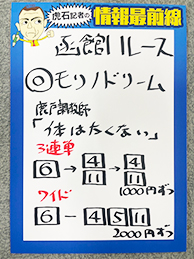 虎石記者の
情報最前線
函館11レース
◎モリノドリーム
虎戸調教師
「体はたくない」
3連単
6→4 11→4 11
1000円ずつ
ワイド
6-4 5 11
2000円ずつ